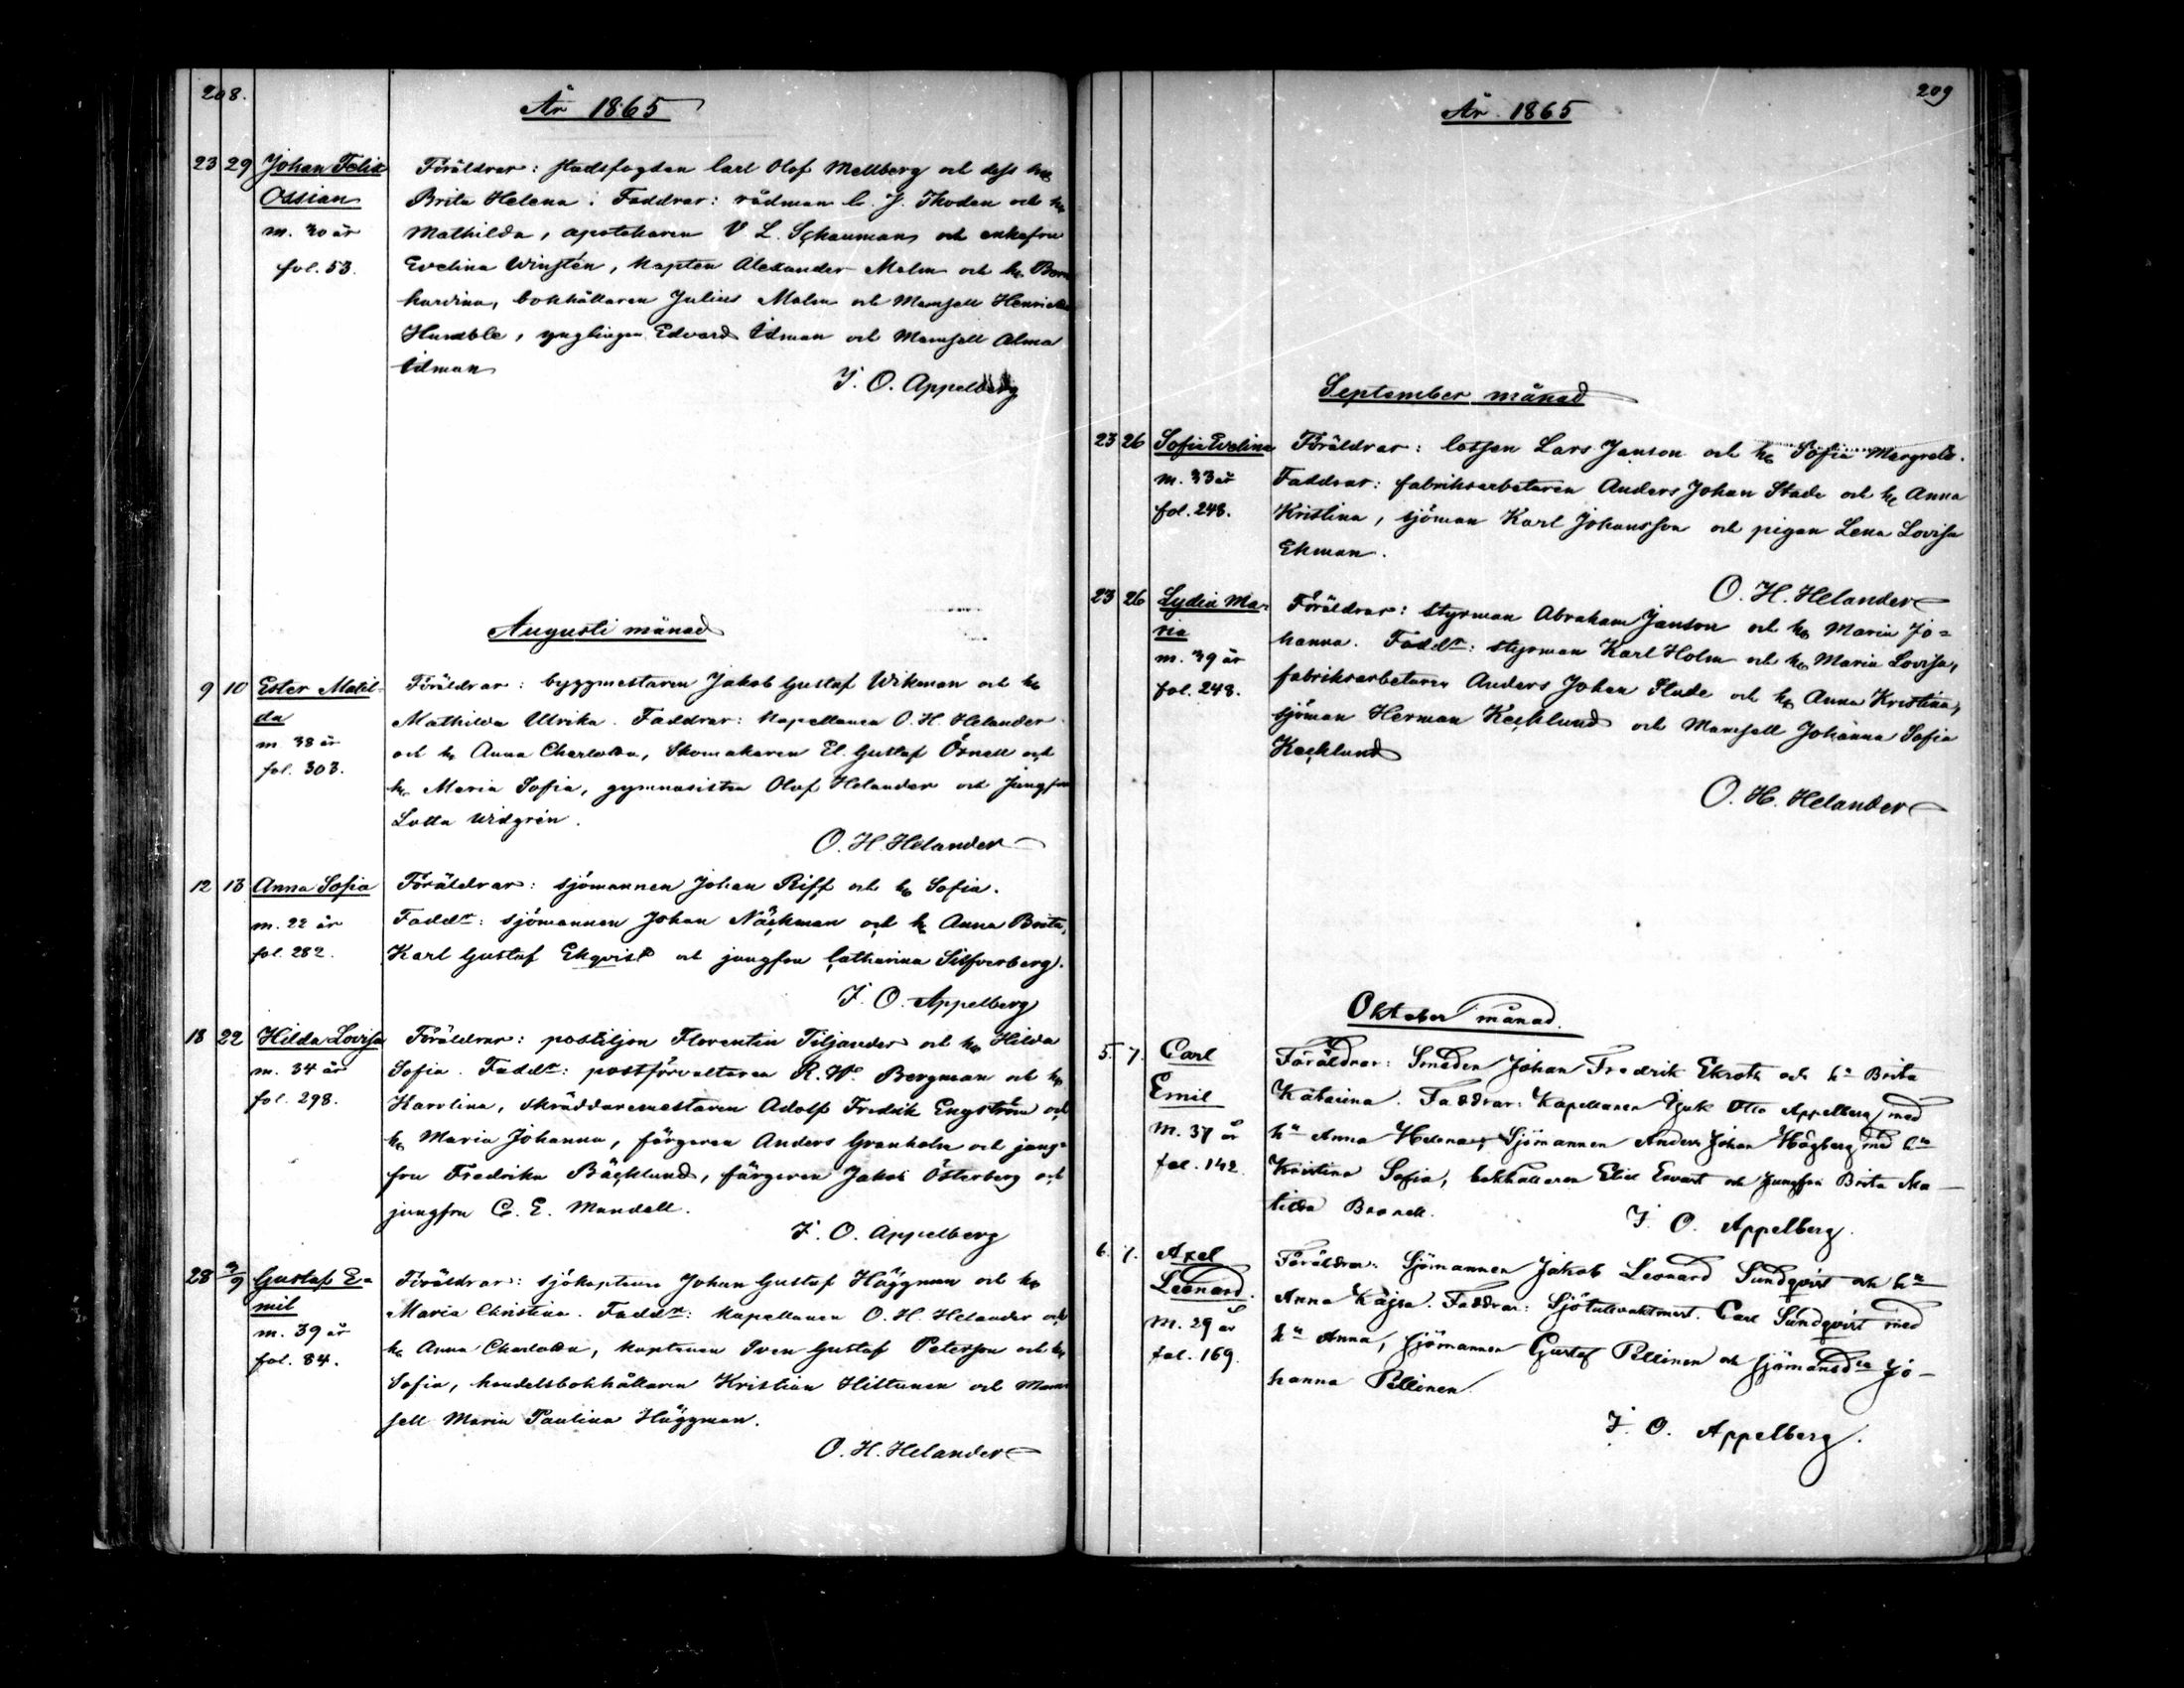 208.
År 1865
23 29 Johan Felix
Ossian
m. 30 år
fol. 53.
Föräldrar: stadsfogden Carl Olof Mellberg och dess hu
Brita Helena. Faddrar: rådman C. J. Thoden och hu
Mathilda, apotekaren V. L. Schauman och enkefru
Evelina Winstén, Kapten Alexander Malm och hu Bern
hardina, bokhållaren Julius Malm och Mamsell Henrietta
Humble, ynglingen Edvard Idman och Mamsell Alma
Idman
J. O. Appelberg
Augusti månad
9 10 Ester Matil-
da
m. 38 år
fol. 303.
Föräldrar: byggmestaren Jakob Gustaf Wikman och hu
Mathilda Ulrika. Faddrar: Kapellanen O. H. Helander
och hu Anna Charlotta, Skomakaren El. Gustaf Örnell och
hu Maria Sofia, gymnasisten Olof Helander och Jungfru
Lotta Widgrén.
O. H. Helander
12 13 Anna Sofia
m. 22 år
fol. 282.
Föräldrar: sjömannen Johan Riff och hu Sofia.
Faddr: sjömannen Johan Näckman och hu Anna Brita,
Karl Gustaf Ekqvist och jungfru Catharina Silfverberg.
J. O. Appelberg
18 22 Hilda Lovisa
m. 34 år
fol. 298.
Föräldrar: postiljon Florentin Tiljander och hu Hilda
Sofia. Faddr: postförvaltaren R. W. Bergman och hu
Karolina, skräddaremestaren Adolf Fredrik Engström och
hu Maria Johanna, färgaren Anders Granholm och jung-
fru Fredrika Bäcklund, färgaren Jakob Österberg och
jungfru C. E. Mandell.
J. O. Appelberg
28 3/9 Gustaf E-
mil
m. 39 år
fol. 84.
Föräldrar: sjökaptenen Johan Gustaf Häggman och hu
Maria Christina. Faddr: Kapellanen O. H. Helander och
hu Anna Charlotta, kaptenen Sven Gustaf Peterson och hu
Sofia, handelsbokhållaren Kristian Hiltunen och Mam
sell Maria Paulina Häggman.
O. H. Helander
209
År 1865
September månad
23 26 Sofia Evelina
m. 33 år
fol. 248.
Föräldrar: lotsen Lars Janson och hu Sofia Margreta.
Faddrar: fabriksarbetaren Anders Johan Stade och hu Anna
Kristina, sjöman Karl Johansson och pigan Lena Lovisa
Ekman.
O. H. Helander
23 26 Lydia Ma-
ria
m. 39 år
fol. 248.
Föräldrar: styrman Abraham Janson och hu Maria Jo-
hanna. Faddr: styrman Karl Holm och hu Maria Lovisa,
fabriksarbetaren Anders Johan Stade och hu Anna Kristina,
sjöman Herman Kecklund och Mamsell Johanna Sofia
Kecklund
O. H. Helander
Oktober månad.
5. 7. Carl
Emil
m. 37 år
fol. 142.
Föräldrar: Smeden Johan Fredrik Ekroth och hu Brita
Katarina. Faddrar: Kapellanen Otto Appelberg med
hu Anna Helena, Sjömannen Anders Johan Högberg med hu
Kristina Sofia, bokhållaren Elis Ewart och Jungfru Brita Ma-
tilda
J. O. Appelberg.
6. 7. Axel
Leonard.
m. 29 år
fol. 169.
Föräldrar: Sjömannen Jakob Leonard Sundqvist och hu
Anna Kajsa. Faddrar: Sjötullvaktmest. Carl Sundqvist med
hu Anna, sjömannen Gustaf Pellinen och sjömansd:r Jo-
hanna Pellinen.
J. O. Appelberg.